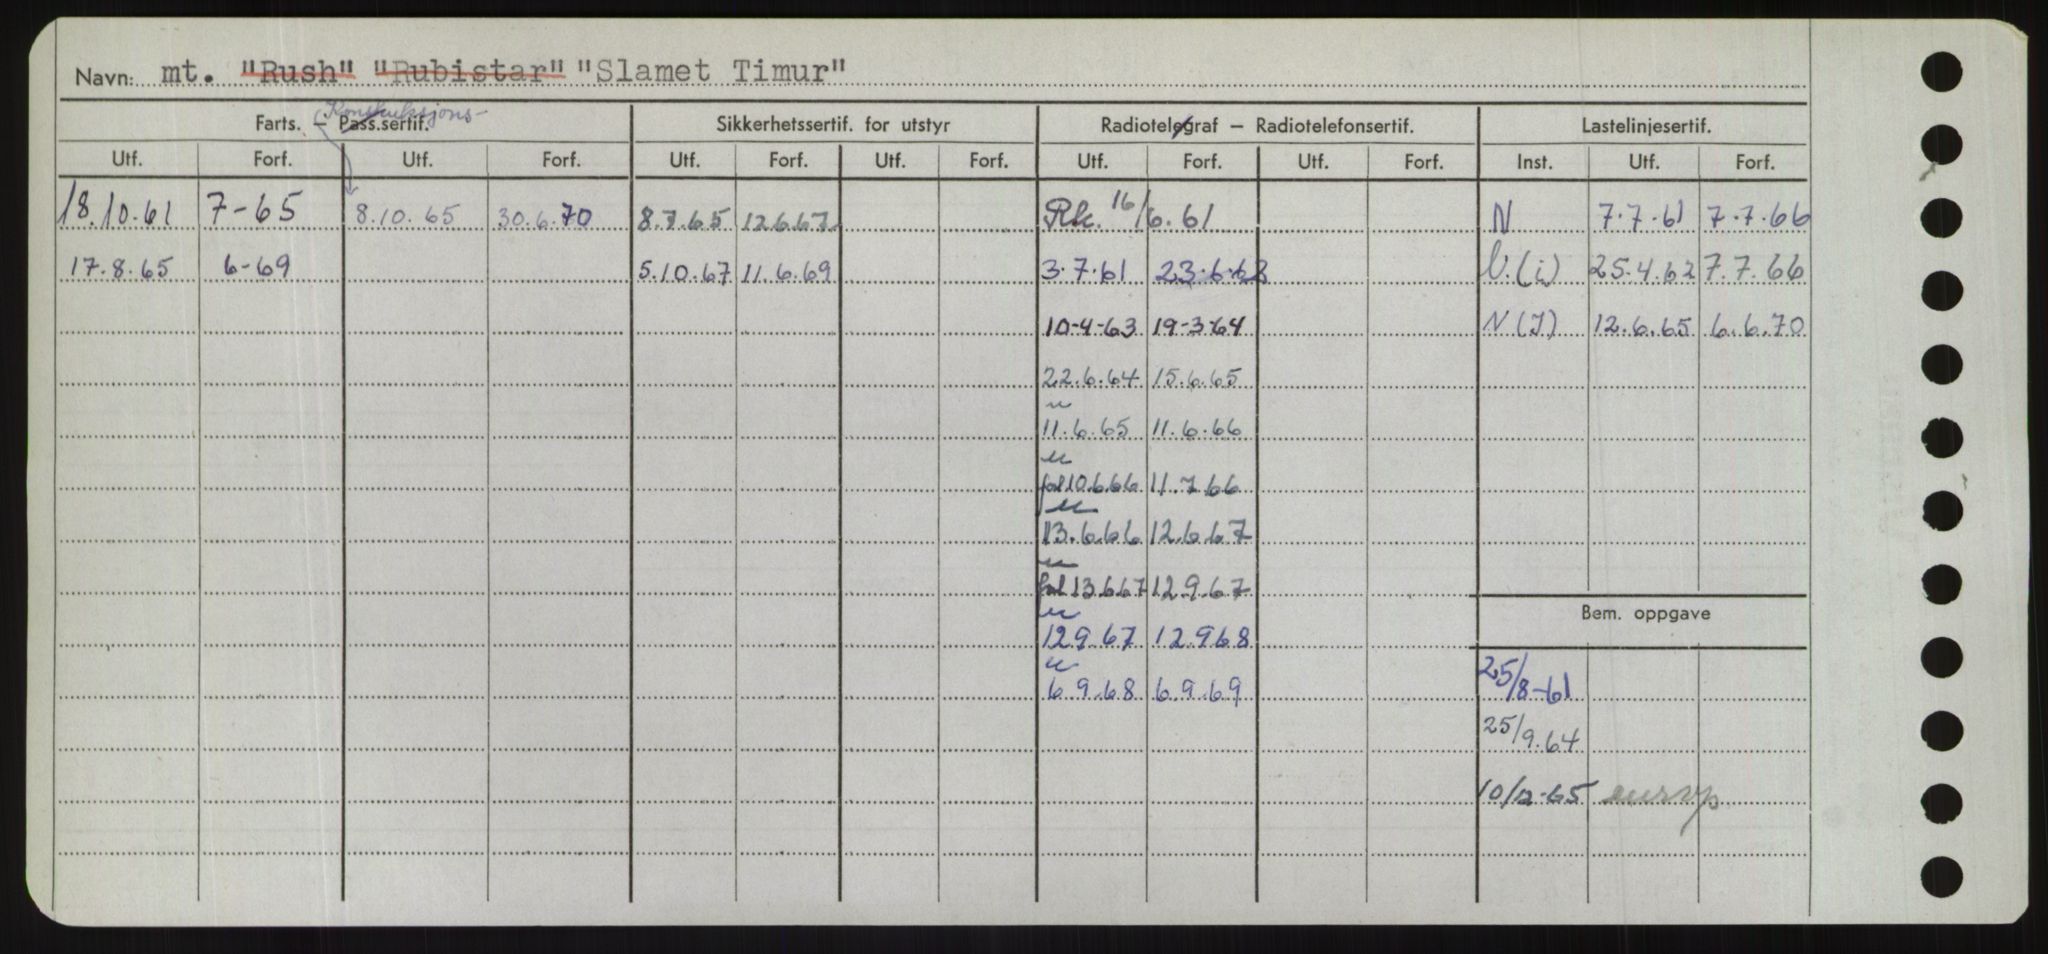 Navn: mt. "Rush" "Rubistar" "Slamet Timur"
Konstruksjons-
Farts. – Pass.sertif. Sikkerhetssertif. for utstyr Radiotelegraf – Radiotelefonsertif. Lastelinjesertif.
Utf. Forf. Utf. Forf. Utf. Forf. Utf. Forf. Utf. Forf. Utf. Forf. Inst. Utf. Forf.
18.10.61 7-65 8.10.65 30.6.70 8.7.65 12.6.67 Rk. 16/6.61 N 7.7.61 7.7.66
17.8.65 6-69 5.10.67 11.6.69 3.7.61 23.6.62 (i) 25.4.62 7.7.66
10-4-63 19-3-64 N(I) 12.6.65 6.6.70
22.6.64 15.6.65
11.6.65 11.6.66
10.6.66 11.7.66
13.6.66 12.6.67
13.6.67 12.9.67
Bem. oppgave
12.9.67 12.9.68
6.9.68 6.9.69 25/8-61
25/9.64
10/12-65